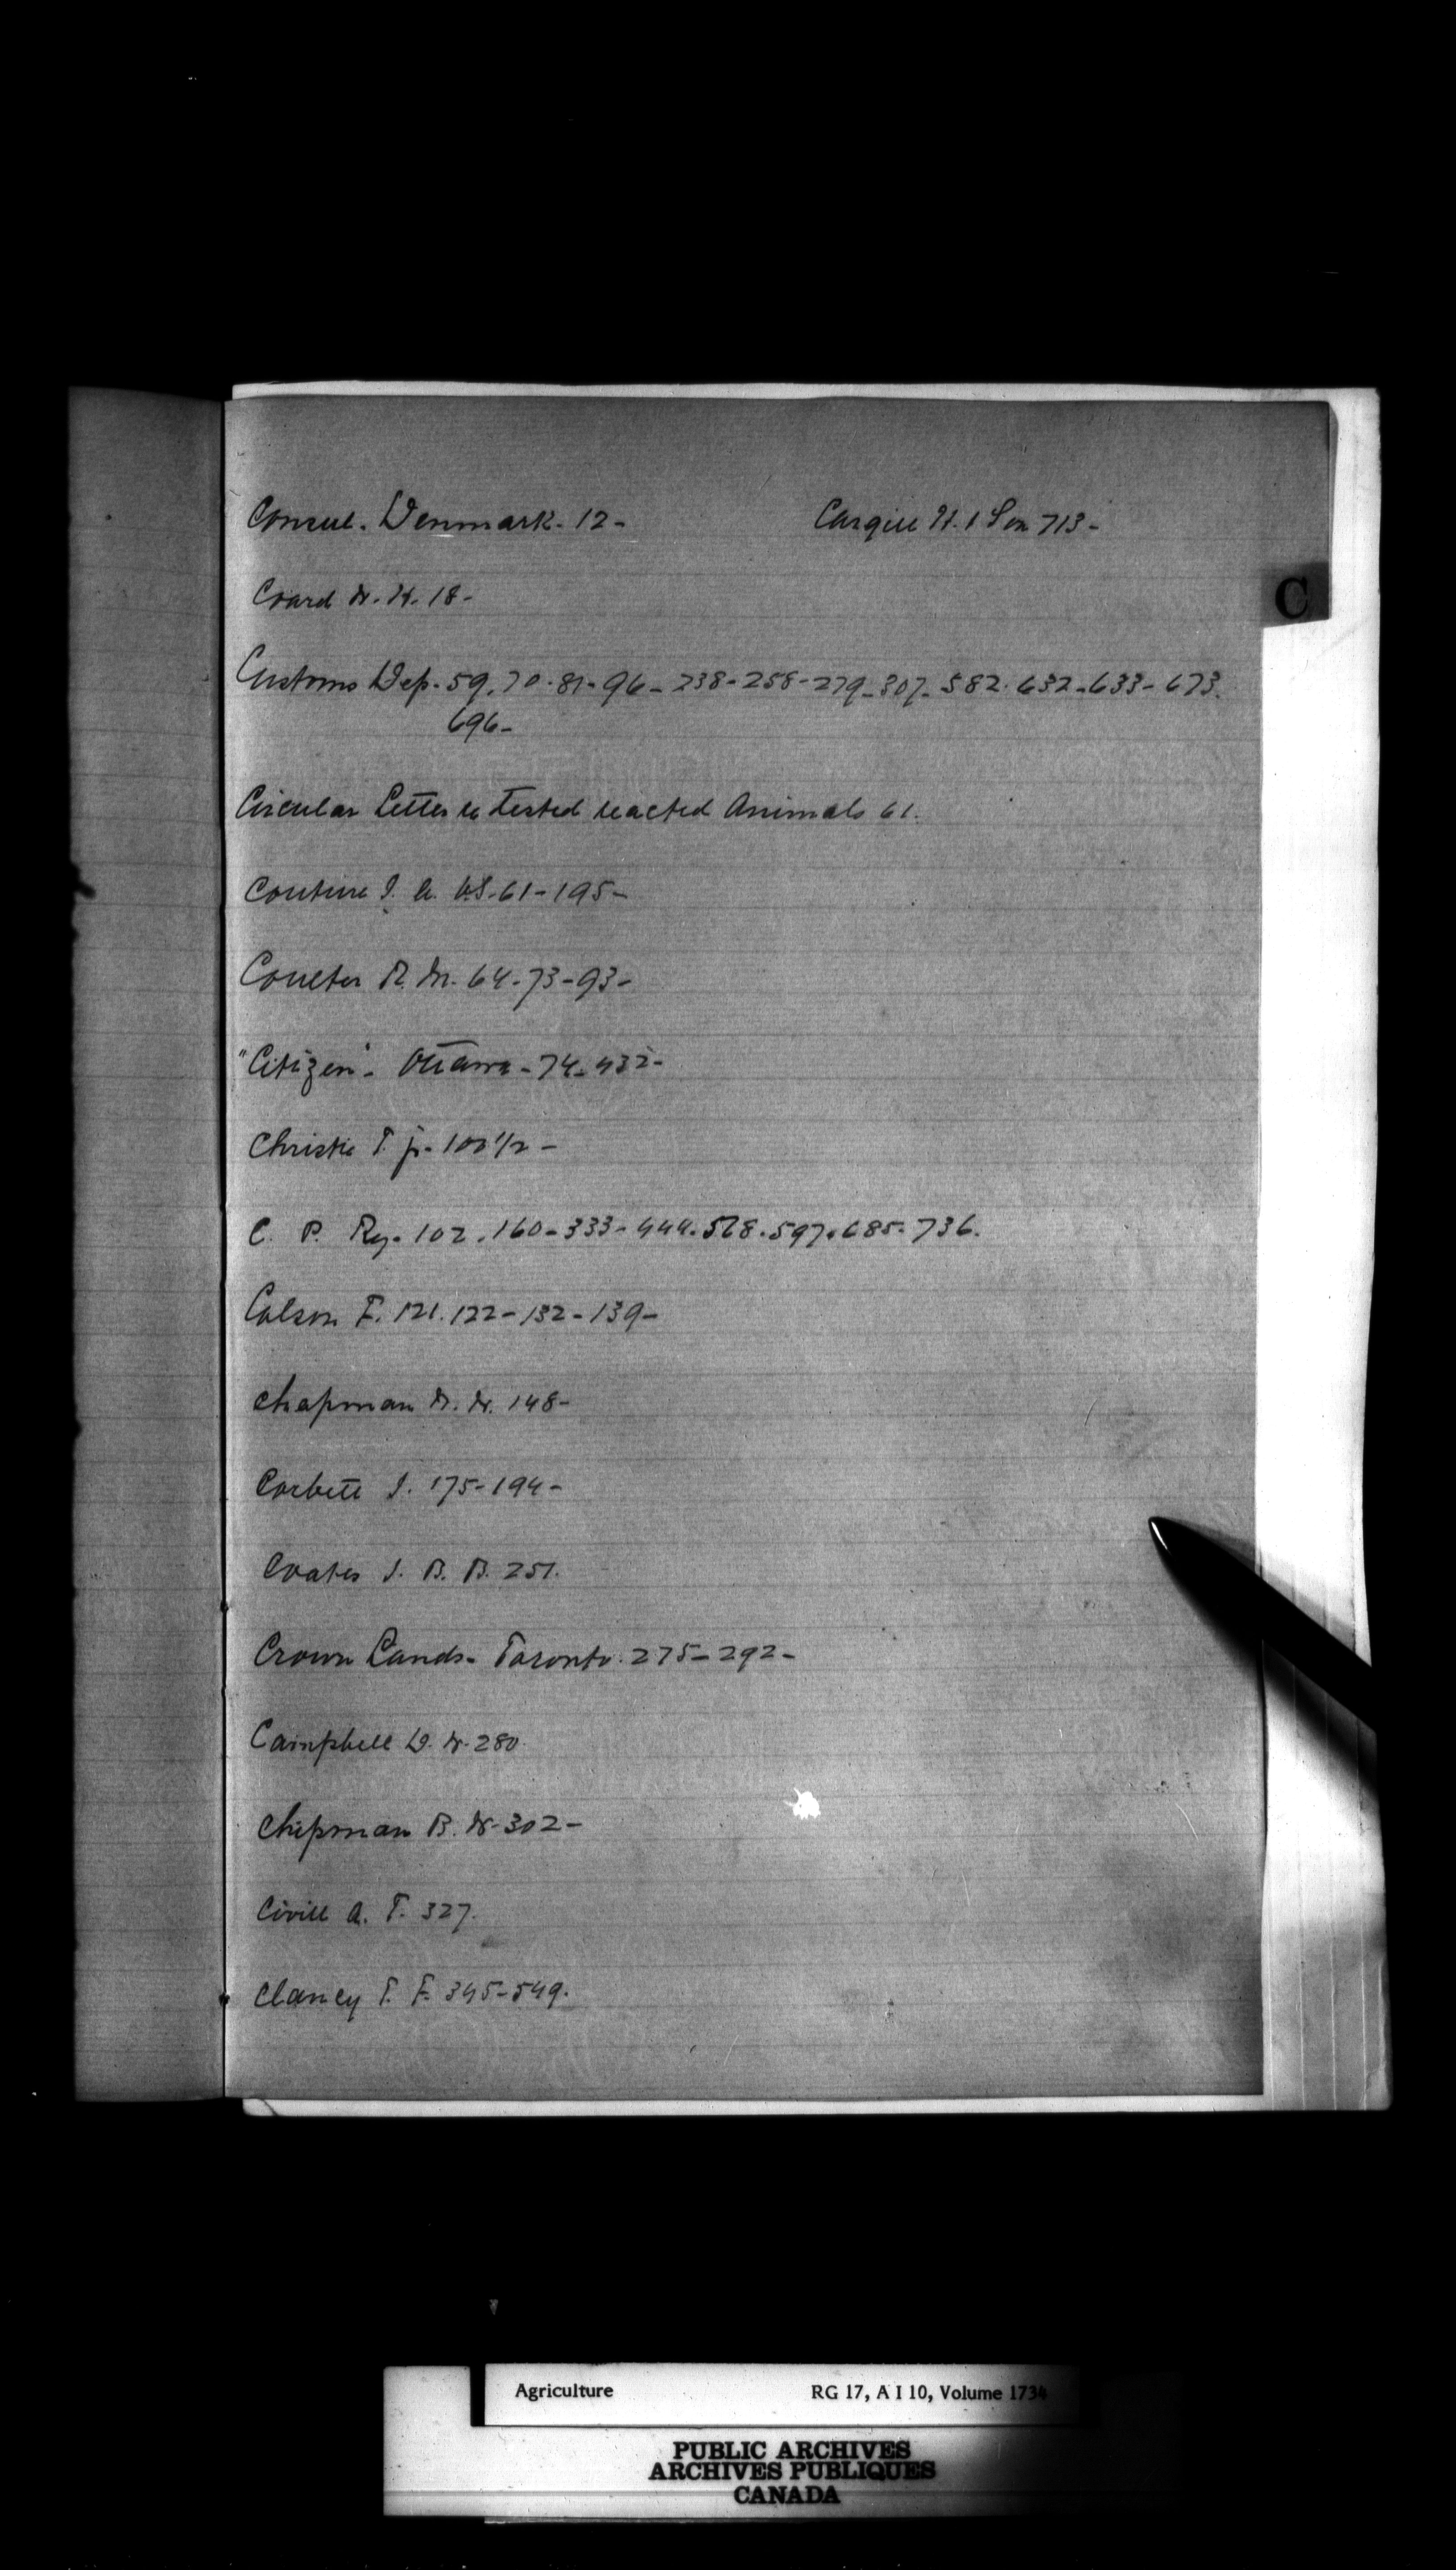 Consul. Denmark. 12-
Cargill H. & Son 713-
C
Coard W. H. 18-
Customs Dep. 59. 70. 81- 96- 238- 258- 279- 307- 582. 632- 633- 673.
696-
Circular Letter re tested reacted Animals 61.
Couture J. A. V.S. 61- 195-
Coulter R. M. 64- 73- 93-
"Citizen". Ottawa- 74- 432-
Christie T. jr. 100 1/2 -
C. P. Ry. 102. 160- 333- 444. 568. 597. 685. 736.
Colson F. 121. 122- 132- 139-
Chapman W. W. 148-
Corbett J. 175- 194-
Coates J. B. B. 251.
Crown Lands. Toronto. 275- 292-
Campbell D. W. 280.
Chipman B. W. 302-
Civill A. T. 327.
Clancy T. F. 345- 549.
Agriculture RG 17, A I 10, Volume 1734
PUBLIC ARCHIVES
ARCHIVES PUBLIQUES
CANADA